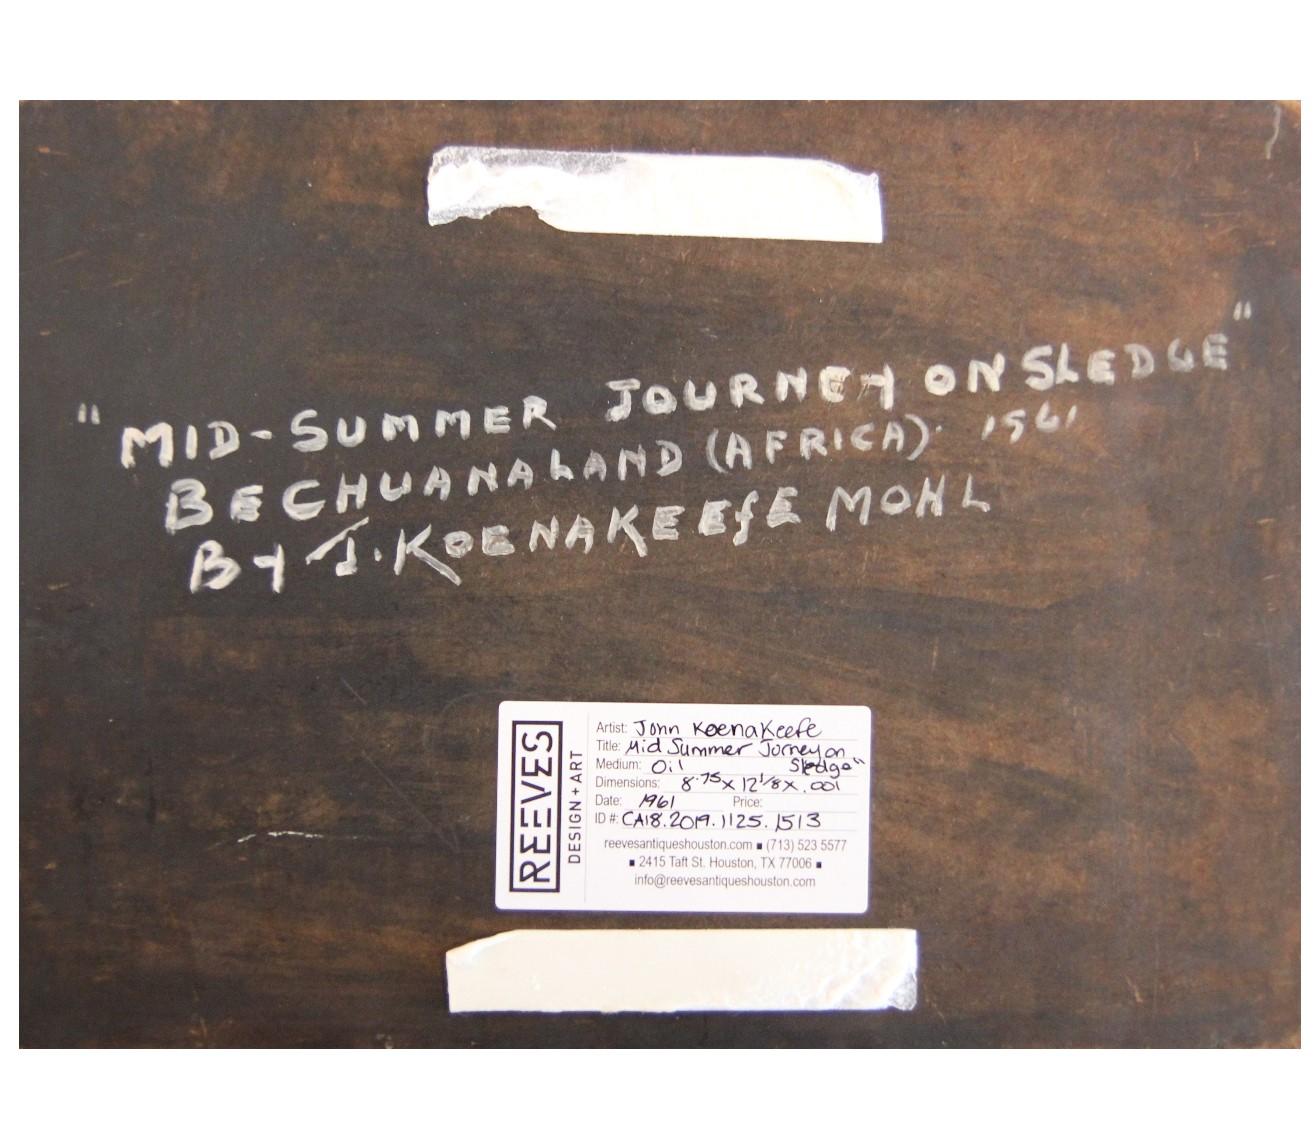 "MID-SUMMER JOURNEY ON SLEDGE"
BECHUANALAND (AFRICA). 1961
BY J. KOENAKEEfE MOHL
REEVES
DESIGN + ART
Artist: John KoenaKeefe
Title: Mid Summer Jorney on
Sledge"
Medium: Oil
Dimensions: 8.75 x 12 1/8 x .001
Date: 1961 Price:
ID #: CA18.2019.1125.1513
reevesantiqueshouston.com ■ (713) 523 5577
■ 2415 Taft St. Houston, TX 77006 ■
info@reevesantiqueshouston.com